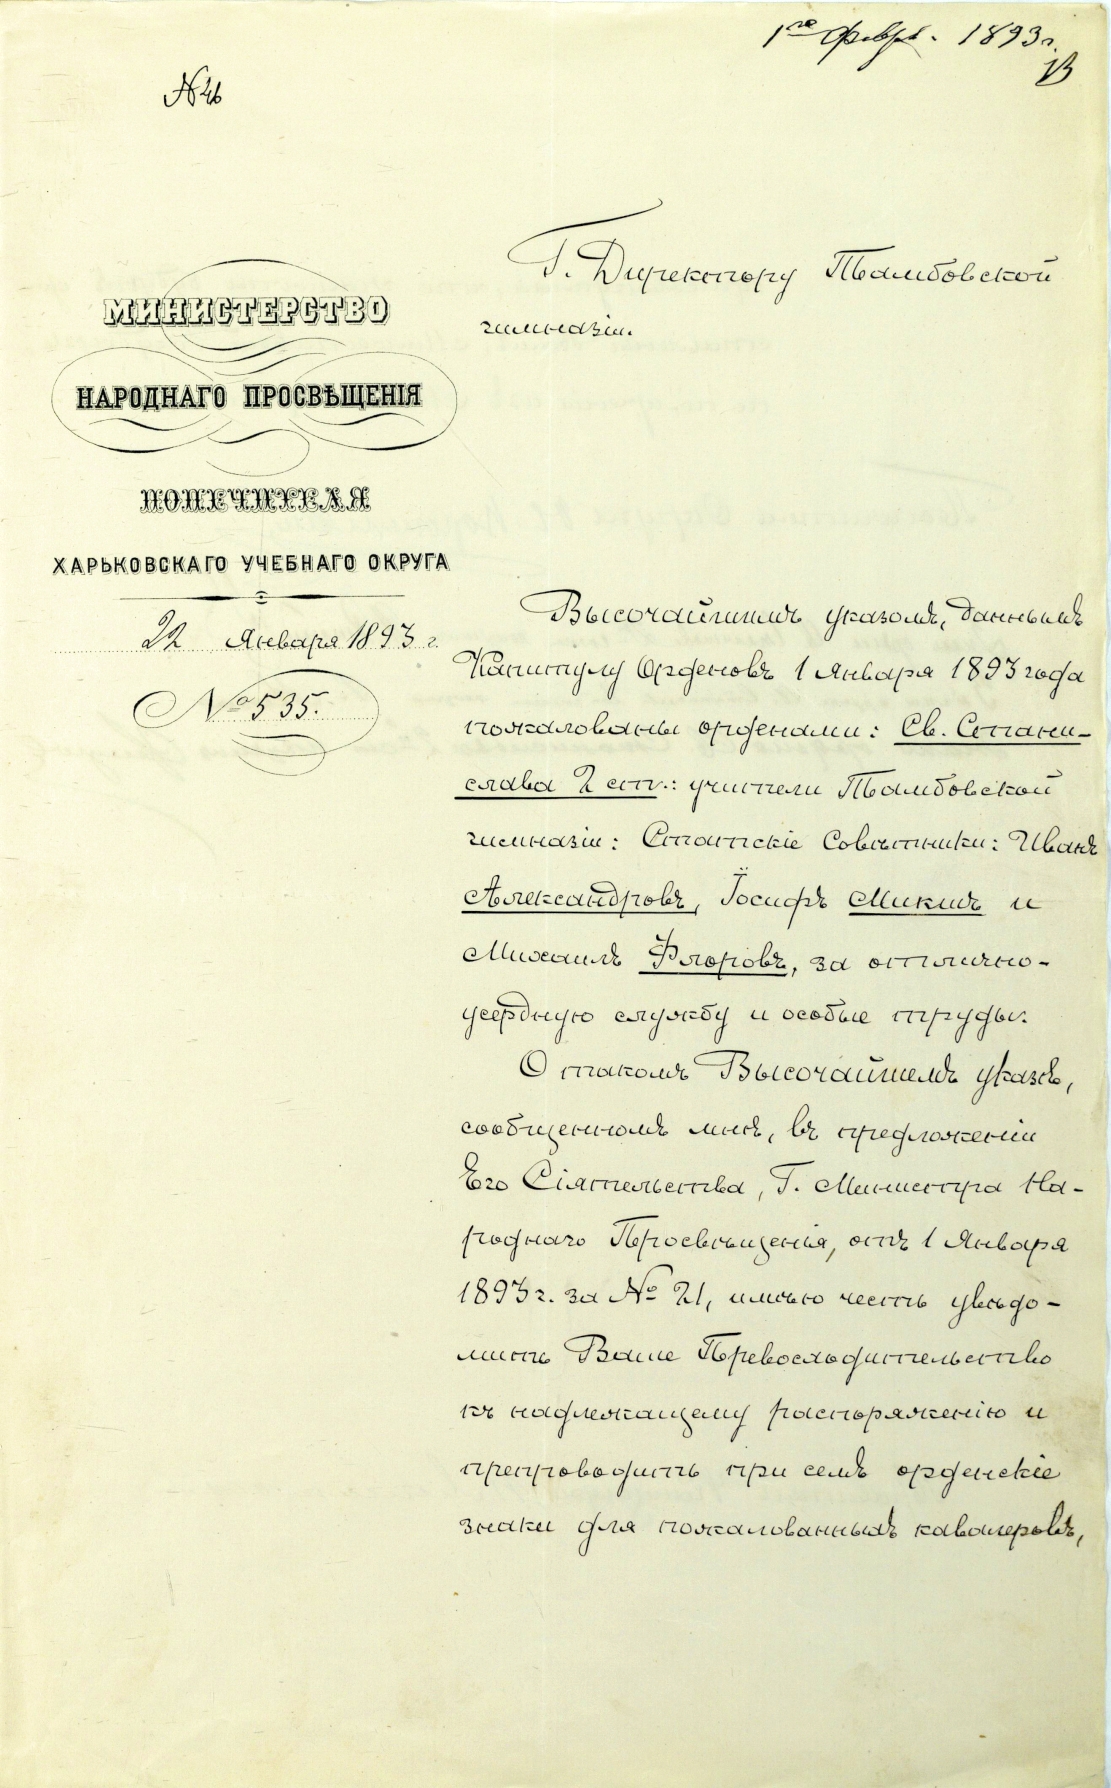 1го Февр. 1893 г.
№ 46
Г. Директору Тамбовской
гимназіи.
МИНИСТЕРСТВО
НАРОДНАГО ПРОСВѢЩЕНІЯ
ПОПЕЧИТЕЛЯ
ХАРЬКОВСКАГО УЧЕБНАГО ОКРУГА
22 Января 1893 г.
№ 535.
Высочайшимъ указомъ, даннымъ
Капитулу Орденовъ 1 Января 1893 года
пожалованы орденами: Св. Стани-
слава 2 ст.: учители Тамбовской
гимназіи: Статскіе Совѣтники: Иванъ
Александровъ, Іосифъ Микшъ и
Михаилъ Флоровъ, за отлично-
усердную службу и особые труды.
О такомъ Высочайшемъ указѣ,
сообщенномъ мнѣ, въ предложеніи
Его Сіятельства, Г. Министра На-
роднаго Просвѣщенія, отъ 1 Января
1893 г. за № 21, имѣю честь увѣдо-
мить Ваше Превосходительство
къ надлежащему распоряженію и
препроводить при семъ орденскіе
знаки для пожалованныхъ кавалеровъ,